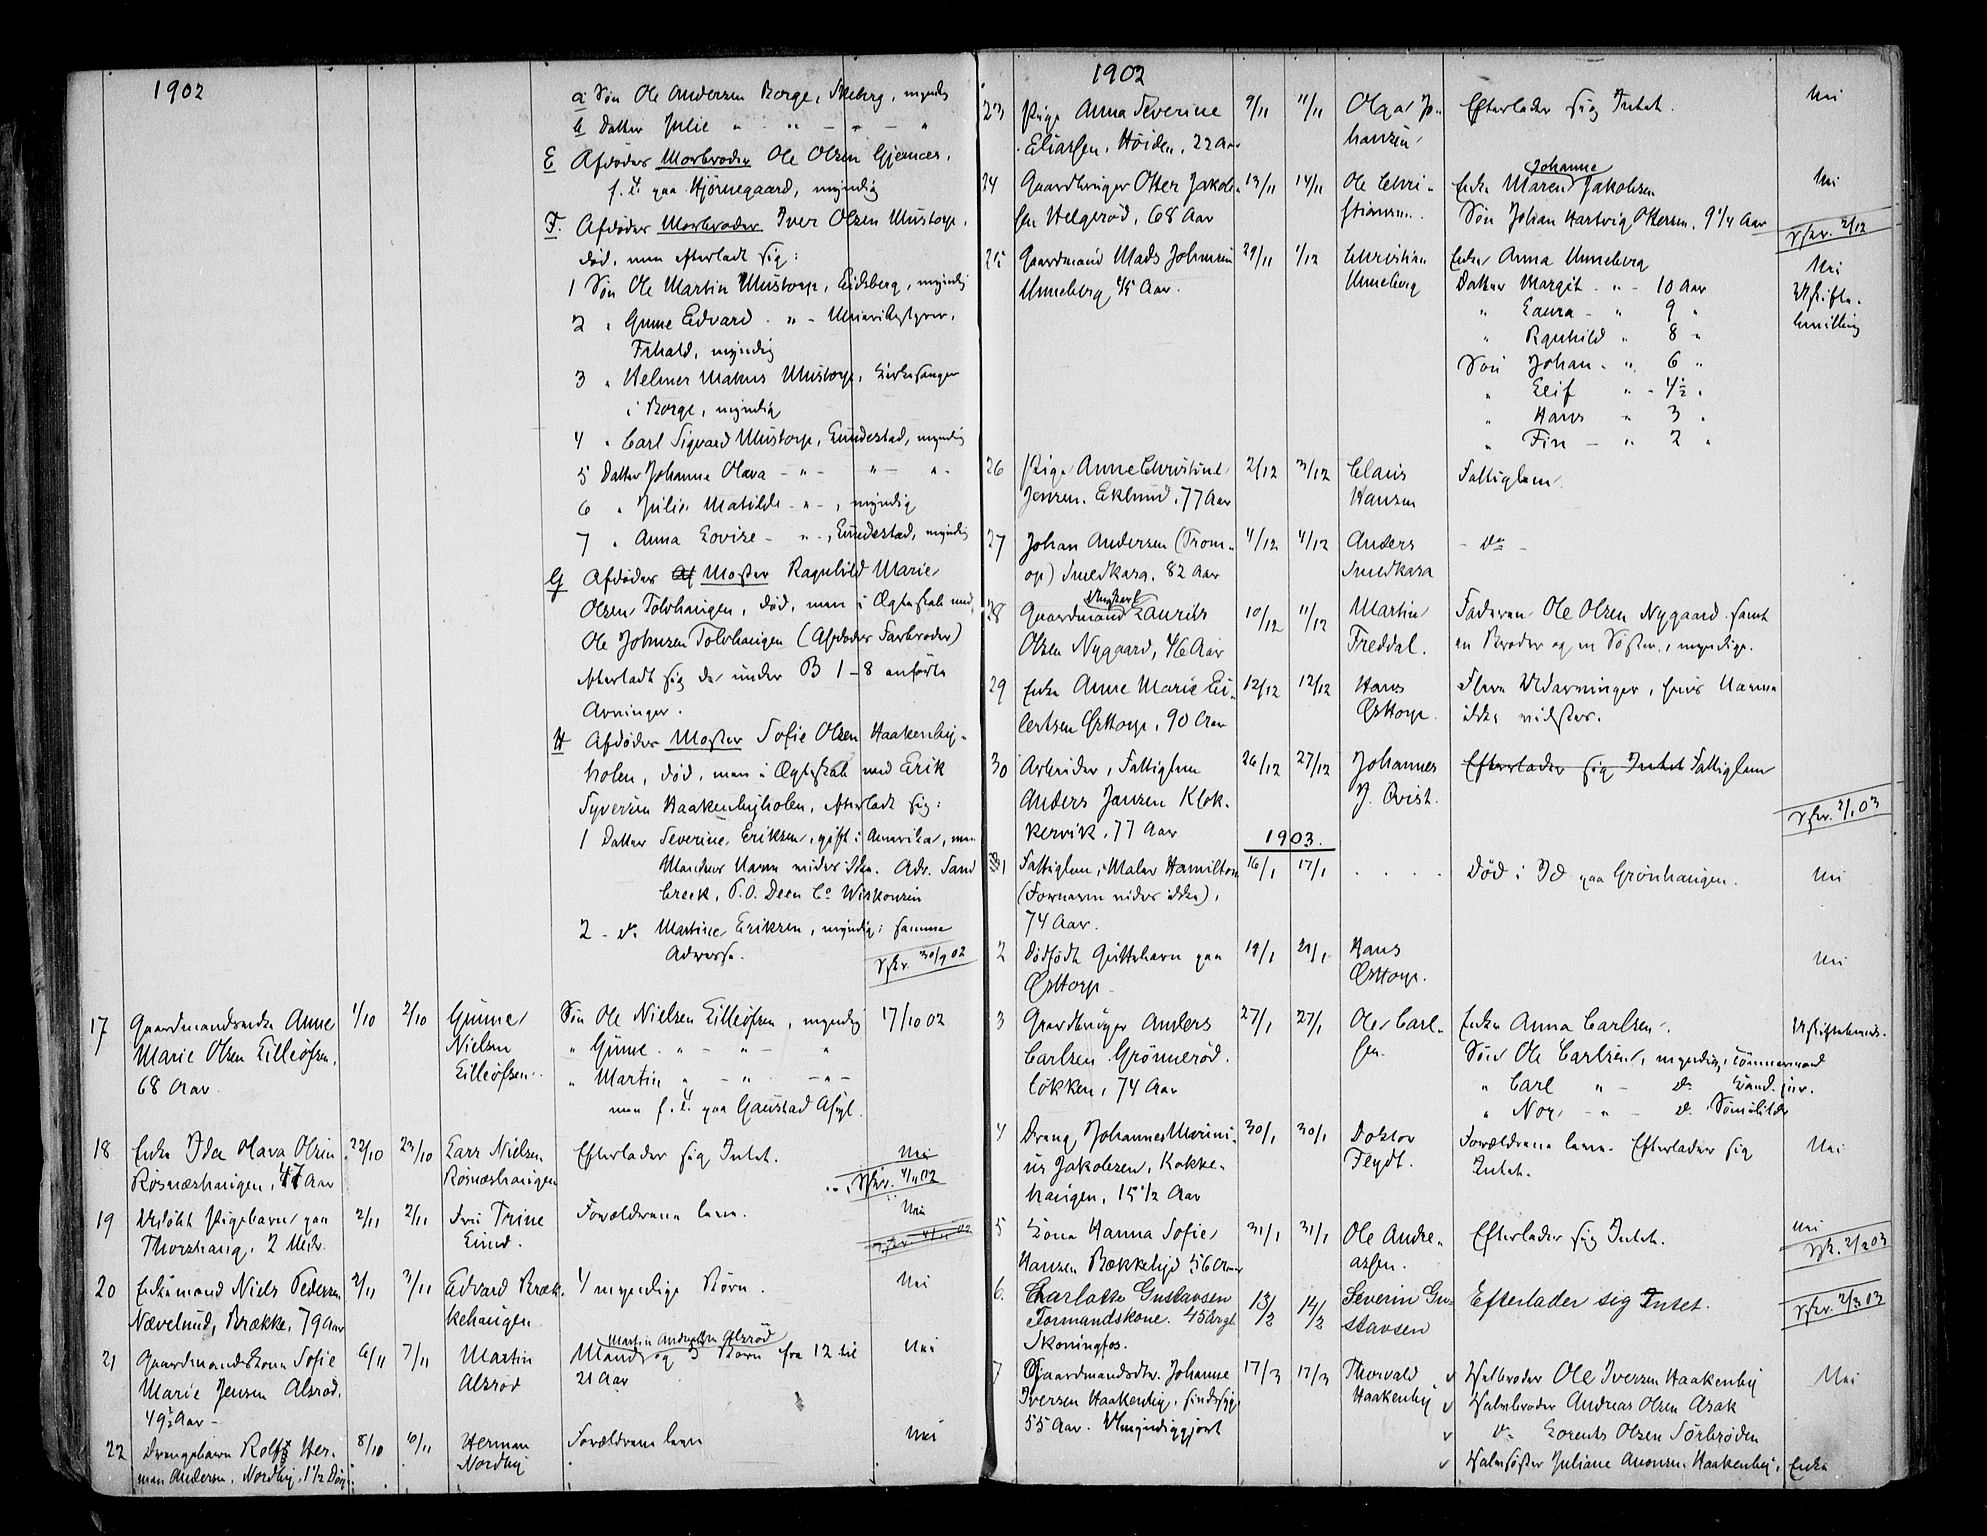 1902
a Søn Ole Andersen Borge, Skeberg, myndig
b Datter Julie " - " - " - "
E Afdødes Morbroder Ole Olsen Gjernes,
f. T. paa Hjørnegaard, myndig
F. Afdødes Morbroder Iver Olsen Mustorp,
død, men efterladt sig:
1 Søn Ole Martin Mustorp, Eidsberg, myndig
2 " Gunne Edvard - " -
Frhald, myndig
3 " Helmer Makus Mustorp, Kirkesanger
i Borge, myndig
4 " Carl Sigvard Mustorp, Gundestad, myndig
5 Datter Johanne Olava - " - " - "
6 " Julie Matilde - " - , myndig
7 " Anna Lovise - " - , Gundestad, myndig
G Afdødes Af Moster Ragnhild Marie
Olsen Tolvhaugen, død, men i Ægteskab med
Ole Johnsen Tolvhaugen (Afdødes Farbroder)
efterladt sig de under B 1-8 anførte
Arvinger.
H Afdødes Moster Sofie Olsen Haakenby-
holen, død, men i Ægteskab med Erik
Syversen Haakenbyholen, efterladt sig:
1 Datter Severine Eriksen, gift i Amerika, men
Mandens Navn vides ikke. Adr. Sand
Creek, P.O. Deen Co Wiskonsin
2 - do Martine Eriksen, myndig: samme
Adresse.
Skr. 30/9 02
17 Gaardmandsenke Anne 1/10 2/10 Gunne Søn Ole Nielsen Lilleøfsen, myndig 17/10 02
Marie Olsen Lilleøfsen, Nielsen " Gunne " - " - "
68 Aar Lilleøfsen. " Martin " - " - " -
men f. T. paa Gaustad Asyl.
18 Enke Ida Olava Olsen 22/10 23/10 Lars Nielsen Efterlader sig Intet. Nei
Røsnæshaugen, 47 Aar Røsnæshaugen Skr. 4/11 02
19 Udøbt Pigebarn paa 2/11 2/11 Fru Trine Forældrene lever. Nei
Thorshaug, 2 Lund. Skr. 4/11 02
20 Enkemand Niels Pedersen 2/11 3/11 Edvard Bræk- 4 myndige Børn. Nei
Nævelund, Brække, 79 Aar kehaugen
21 Gaardmandskone Sofie 6/11 7/11 Martin Mand Martin Andersen Alsrød og 3 Børn fra 12 til Nei
Marie Jensen Alsrød, Alsrød 21 Aar
49½ Aar -
22 Drengebarn Rolf Her- 8/10 6/11 Herman Forældrene lever Nei
man Andersen, Nordby, 1½ Døgn Nordby
1902
23 Pige Anna Severine 9/11 11/11 Olga Jo- Efterlader sig Intet. Nei
Eliassen, Høiden, 22 Aar hansen
24 Gaardbruger Otter Jakob- 13/11 14/11 Ole Chri- Enke Maren Johanne Jakobsen Nei
sen Helgerød, 68 Aar stiansen. Søn Johan Hartvig Ottersen, 9 1/4 Aar
Skr. 2/12
25 Gaardmand Mads Johnsen 29/11 1/12 Christian Enke Anna Unneberg Nei
Unneberg, 45 Aar. Unneberg Datter Margit - " - 10 Aar
" Laura - " 9 "
" Ragnhild " 8 "
Søn Johan - " 6 "
" Leif " - 4½ "
" Hans " 3 "
" Fin - " 2 "
26 Pige Anne Christine 2/12 3/12 Claus Fattiglem.
Jensen. Eklund, 77 Aar Hansen
27 Johan Andersen (Trom- 4/12 4/12 Anders - do -
op) Smedkasa. 82 Aar Smedkasa
28 Gaardmand Ungkarl Laurits 10/12 11/12 Martin Faderen Ole Olsen Nygaard samt
Olsen Nygaard, 46 Aar Freddal. en Broder og en Søster, myndige.
29 Enke Anne Marie Ei- 12/12 12/12 Hans Flere Udarvinger, hvis Navne
lertsen Østtorp, 90 Aar Østtorp. ikke vidstes.
30 Arbeider, Fattiglem 26/12 27/12 Johannes Efterlader sig Intet Fattiglem
Anders Jansen Klok- J. Qvist.
kervik, 77 Aar Skr. 2/1 03
1903.
1 Fattiglem, Maler Hamilton 16/1 17/1 . . . . Død i Id paa Grønhaugen. Nei
(Fornavn vides ikke),
74 Aar.
2 Dødfødt Guttebarn paa 19/1 21/1 Hans Nei
Østtorp Østtorp.
3 Gaardbruger Anders 27/1 27/1 Ole Carl- Enke Anna Carlsen.
Carlsen Grønnerød- sen. Søn Ole Carlsen, myndig, Tømmermand
løkken, 74 Aar " Carl " - do
" Nor, - " - do
4 Dreng Johannes Marini- 30/1 30/1 Doktor Forældrene lever. Efterlader sig Nei
us Jakobsen, Kokke- Feydt. Intet.
haugen, 15½ Aar
5 Kone Hanna Sofie 31/1 31/1 Ole Andre- Efterlader sig Intet. Nei
Hansen Bækkelyd 56 Aar assen. Skr. 2/2 03
6. Charlotte Gustavsen 13/2 14/2 Severin Gu- Efterlader sig Intet. Skr. 2/3 03
Formandskone. 45 Aargl. stavsen
Skoningfos.
7 Gaardmandsdtr. Johanne 17/3 17/3 Thorvald v Halvbroder Ole Iversen Haakenby Nei
Iversen Haakenby, sindssyg, Haakenby v Halvbroder Andreas Olsen Asak
55 Aar. Umyndiggjort v do Lorents Olsen Sørbrøden
v Halvsøster Juliane Haakenby, Enke